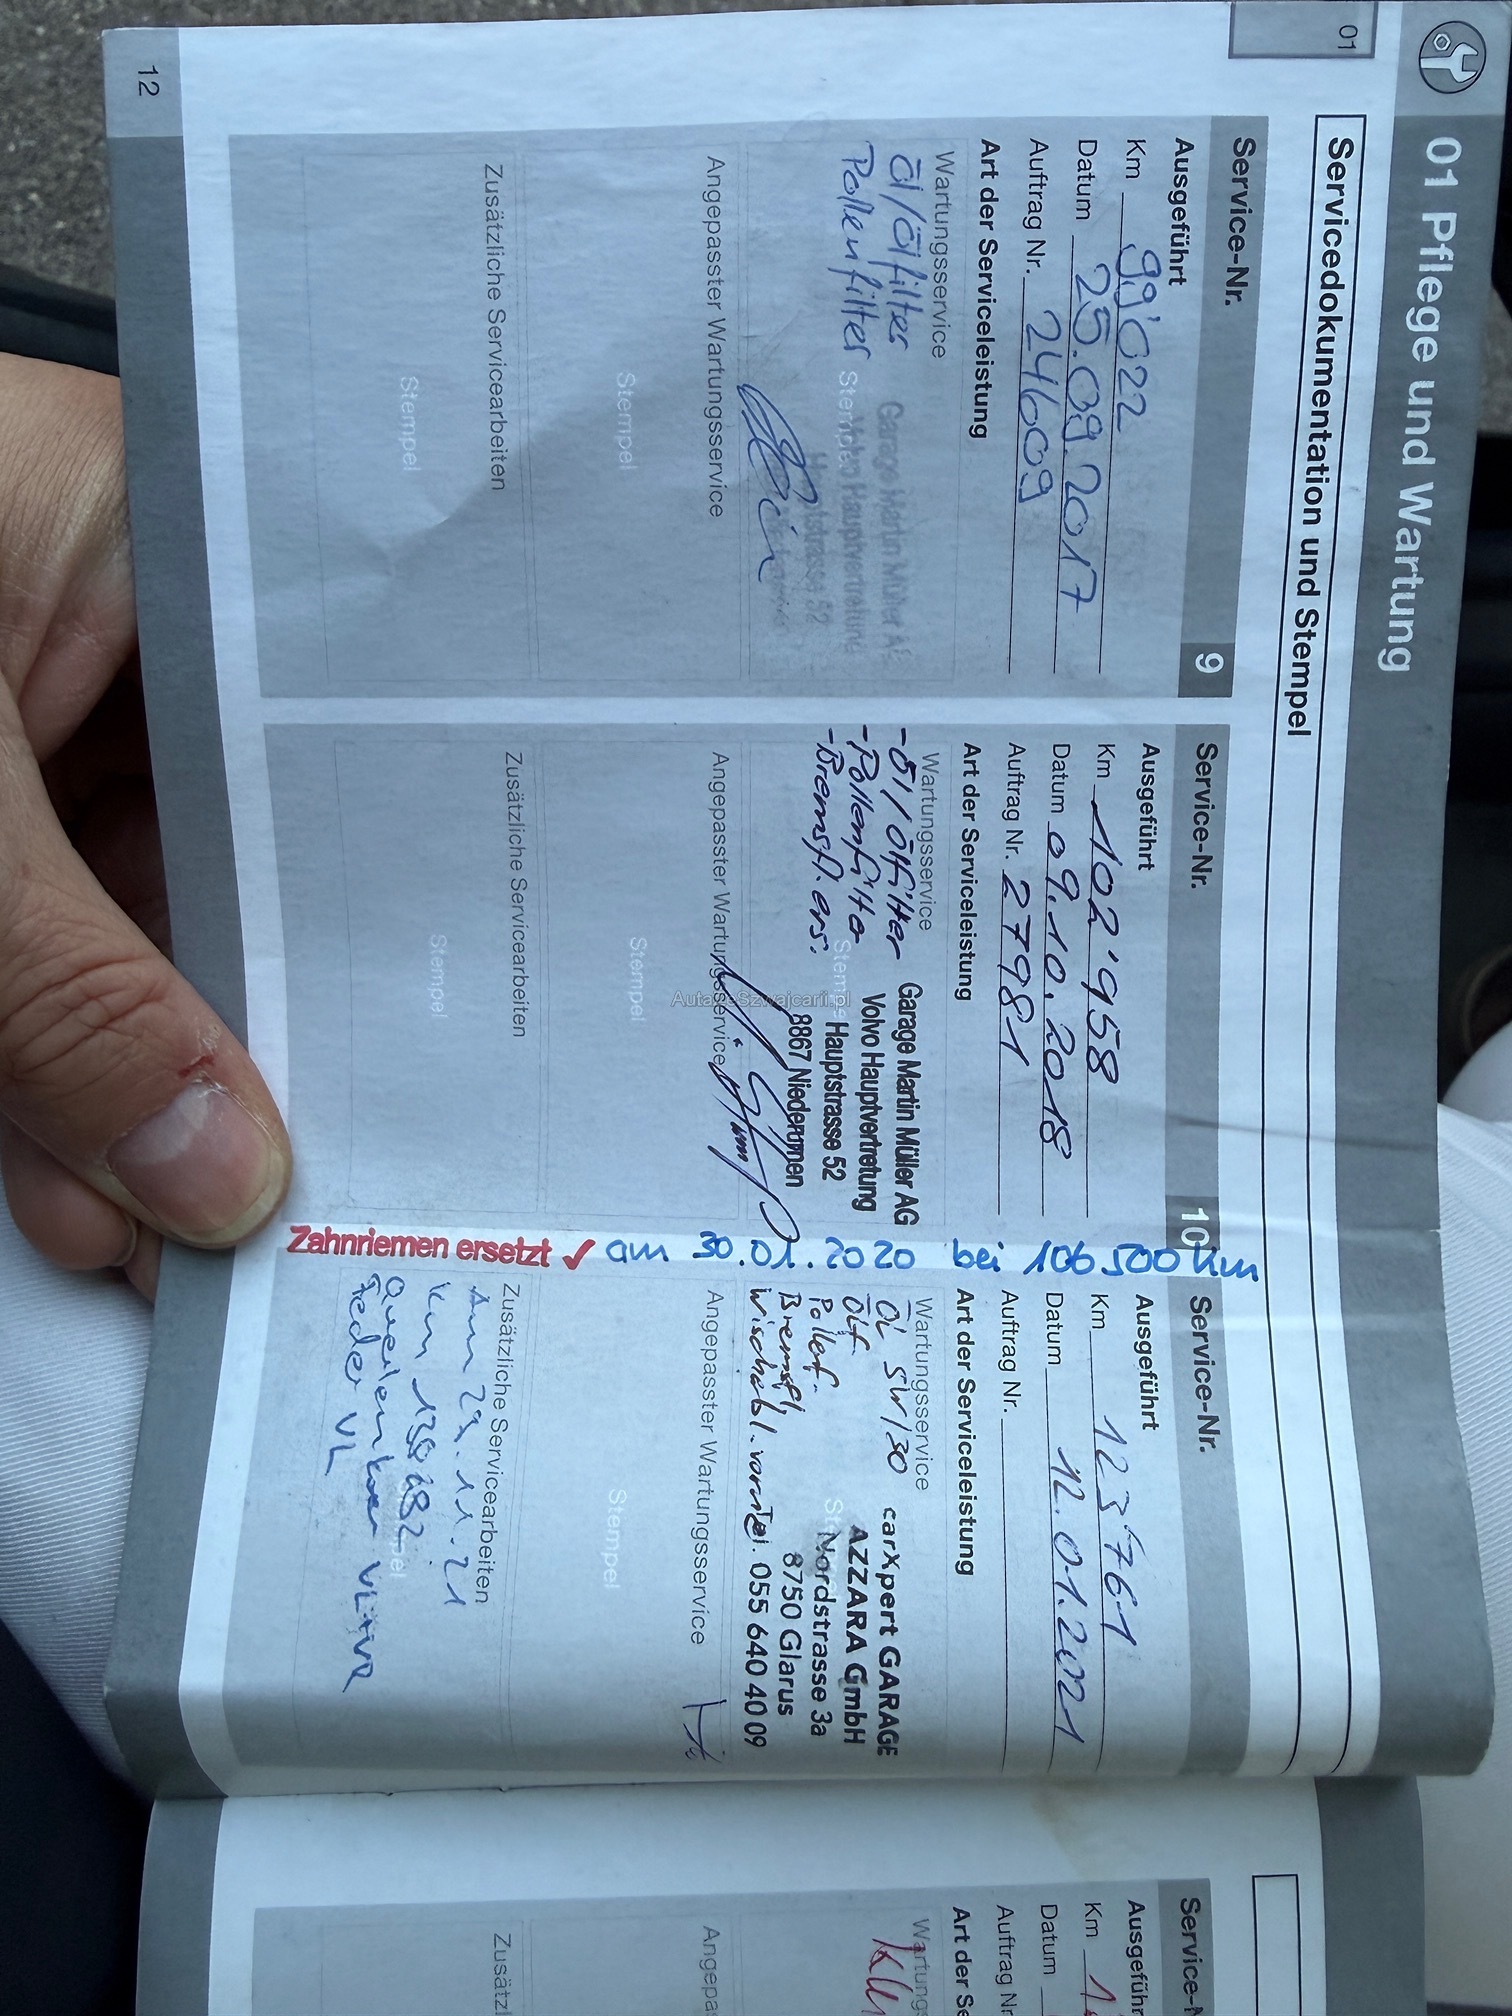 01 Pflege und Wartung
01
Servicedokumentation und Stempel
Service-Nr. 9
Ausgeführt
Km 99'022
Datum 25.09.2017
Auftrag Nr. 24609
Art der Serviceleistung
Wartungsservice
Öl/Ölfilter
Pollenfilter
Stempel
Garage Martin Müller AG
Volvo Hauptvertretung
Hauptstrasse 52
Angepasster Wartungsservice
Stempel
Zusätzliche Servicearbeiten
Stempel
Service-Nr. 10
Ausgeführt
Km 102'958
Datum 09.10.2018
Auftrag Nr. 27981
Art der Serviceleistung
Wartungsservice
-Öl/Ölfilter
-Pollenfilter
-Bremsfl. ers.
Stempel
Garage Martin Müller AG
Volvo Hauptvertretung
Hauptstrasse 52
8867 Niederurnen
Angepasster Wartungsservice
Stempel
Zusätzliche Servicearbeiten
Stempel
Zahnriemen ersetzt ✓ am 30.01.2020 bei 106500 Km
Service-Nr.
Ausgeführt
Km 123'761
Datum 12.01.2021
Auftrag Nr.
Art der Serviceleistung
Wartungsservice
ÖL 5W/30
ÖLf.
Pollenf.
Bremsfl.
Wischebl. vorn
Stempel
carXpert GARAGE
AZZARA GmbH
Nordstrasse 3a
8750 Glarus
Tel. 055 640 40 09
Angepasster Wartungsservice
Stempel
Zusätzliche Servicearbeiten
Am 29.11.21
Km
Querlenker VL+VR
Feder VL
12
Service-N
Ausgeführ
Km
Datum
Auftrag N
Art der Se
Wartungs
Angepa
Zusätzl
AutazeSzwajcarii.pl